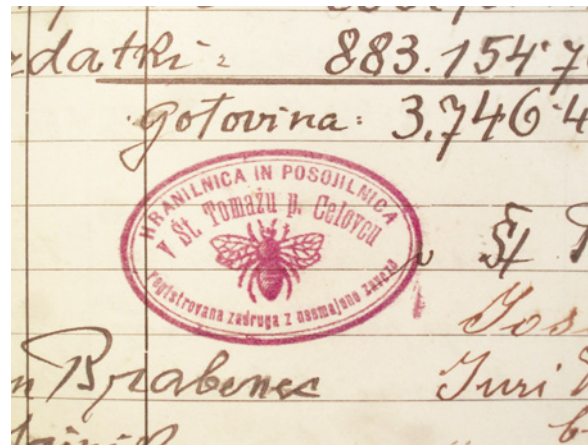 zdatki: 883.154 7
gotovina: 3.746 4
HRANILNICA IN POSOJILNICA
v Št. Tomažu p. Celovcu
registrovana zadruga z neomejeno zavezo
v Št
Jos
Brabenec Juri